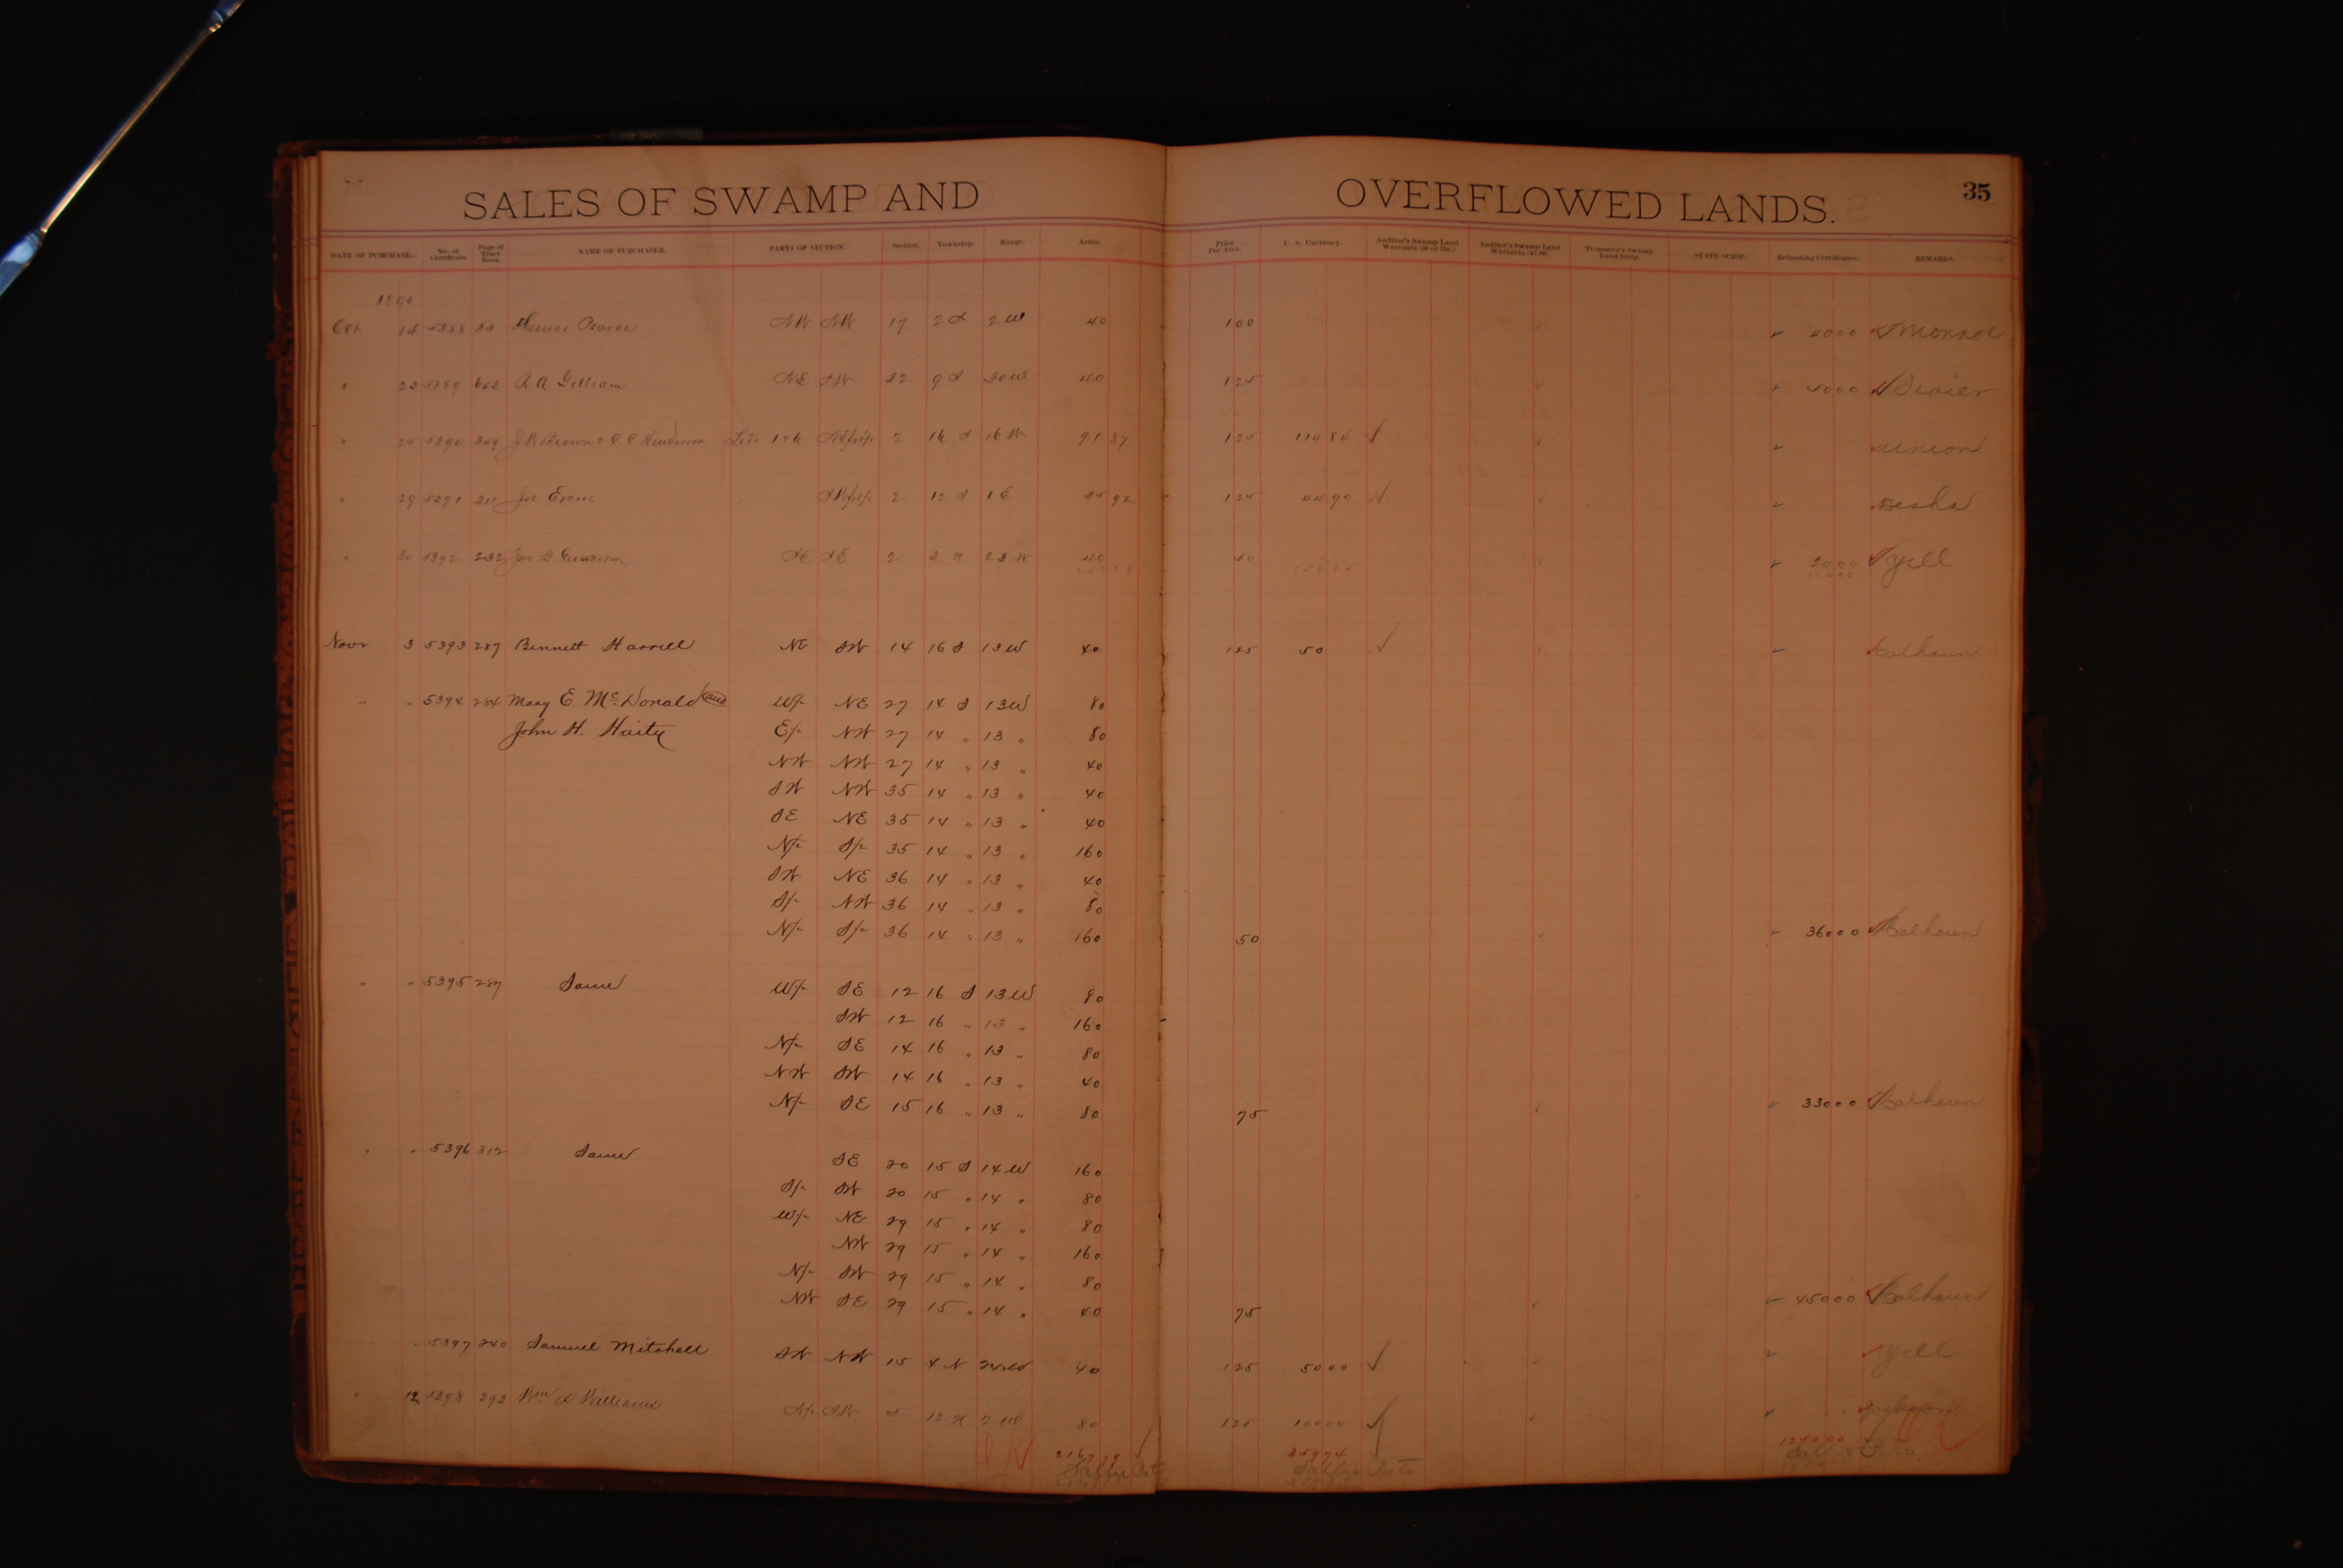 SALES OF SWAMP AND OVERFLOWED LANDS. 35
DATE OF PURCHASE. No. of Certificate. Page of Tract Book. NAME OF PURCHASER. PARTS OF SECTION. Section. Township. Range. Acres. Price Per Acre. U. S. Currency. Auditor's Swamp Land Warrants (50 or 75c.) Auditor's Swamp Land Warrants ($1.00) Treasurer's Swamp Land Scrip. STATE SCRIP. Refunding Certificates. REMARKS.
1890
14 5388 NW NW 17 2 S 2 W 40 100 4000 Monroe
" 23 5389 A Gilliam NE SW 9 S 30 W 40 125 5000 Sevier
" 25 5390 J W Brown & Henderson Lots NE frl 2 16 S 16 W 91 87 125 114 84 ✓ Union
" 29 5391 Joe Evans SW frl 2 12 S 1 E 35 92 125 44 90 ✓ Desha
" 30 5392 232 SE SE 2 N 23 W 40 50 2000 Yell
Novr 3 5393 289 Bennett Harrell NE SW 14 16 S 13 W 40 125 50 ✓ Calhoun
" " 5394 284 Mary E. McDonald and W/2 NE 27 14 S 13 W 80
John H. E/2 NW 27 14 " 13 " 80
NW NW 27 14 " 13 " 40
SW NW 35 14 " 13 " 40
SE NE 35 14 " 13 " 40
N/2 S/2 35 14 " 13 " 160
SW NE 36 14 " 13 " 40
S/2 NW 36 14 " 13 " 80
N/2 S/2 36 14 " 13 " 160 50 36000 Calhoun
" " 5395 289 Same W/2 SE 12 16 S 13 W 80
SW 12 16 " 13 " 160
N/2 SE 14 16 " 13 " 80
NW SW 14 16 " 13 " 40
N/2 SE 15 16 " 13 " 80 75 33000 Calhoun
" " 5396 312 Same SE 20 15 S 14 W 160
S/2 SW 20 15 " 14 " 80
W/2 NE 29 15 " 14 " 80
NW 29 15 " 14 " 160
N/2 SW 29 15 " 14 " 80
NW SE 29 15 " 14 " 40 75 45000 Calhoun
" 5397 240 Samuel Mitchell SW NW 15 4 N 24 W 40 125 5000 ✓ Yell
" 12 5398 293 Wm Williams N/2 SW 5 12 N 2 W 80 125 10000 ✓
OK 2167 79 359 74 1250 00